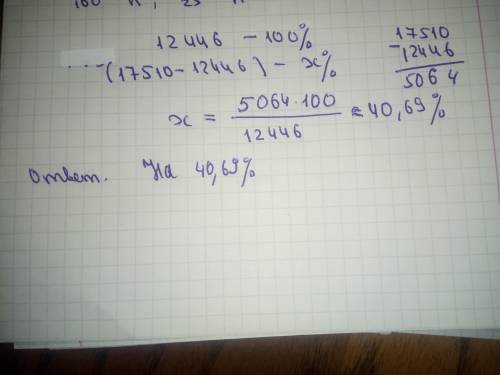 12446 - 100%
(17510-12446) - x%
17510
-12446
5064
x = 5064·100
12446
≈ 40,69%
Ответ. На 40,69%